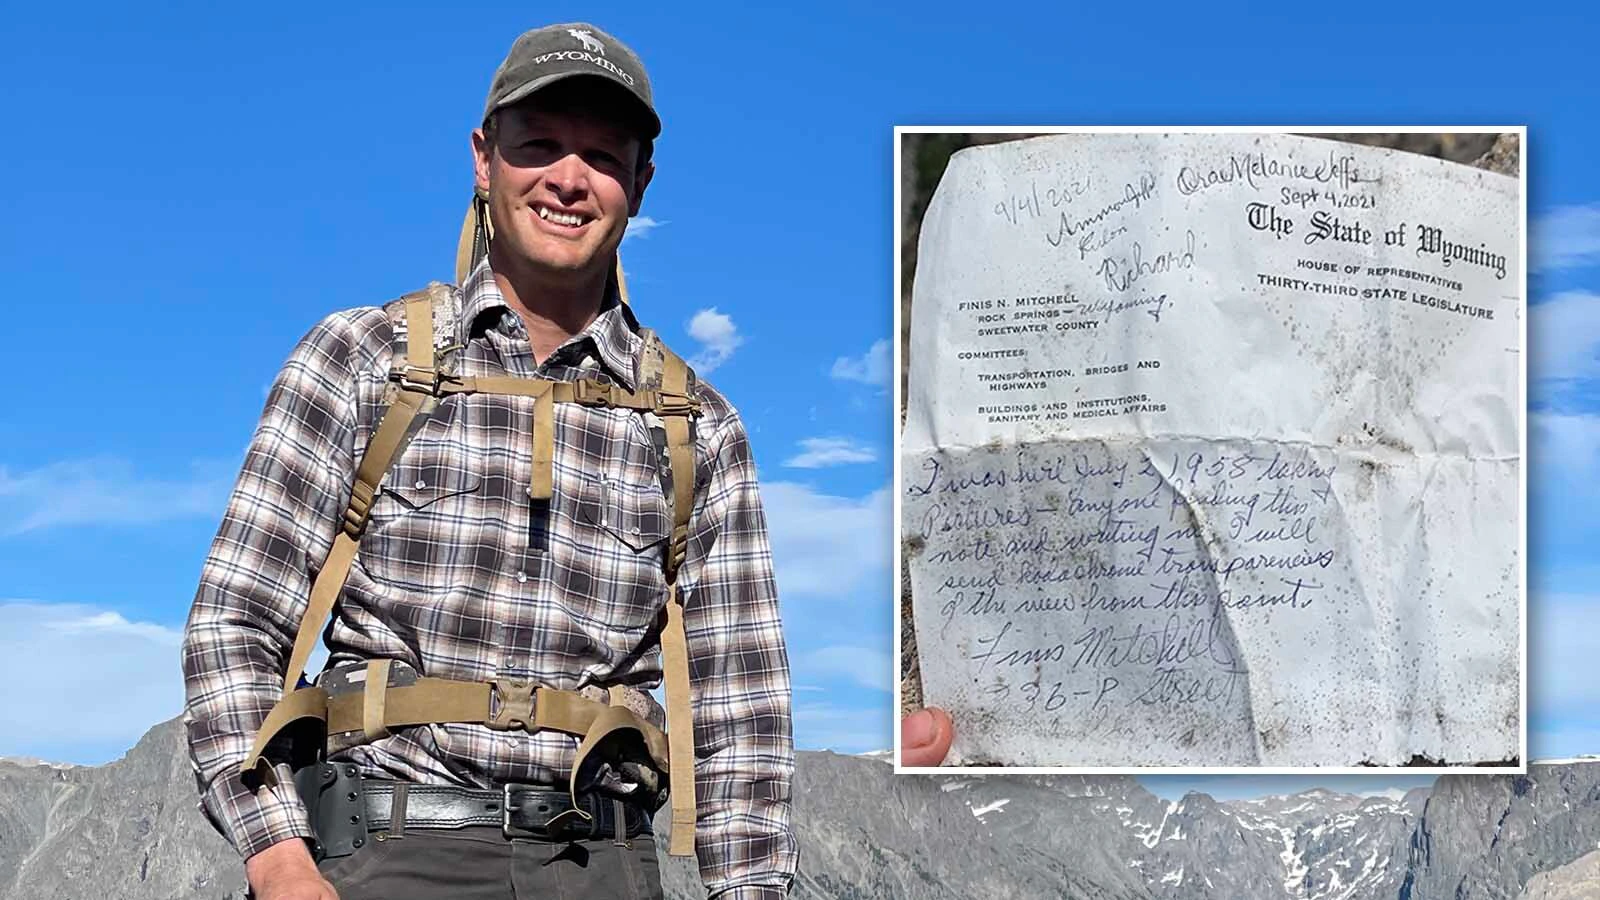 WYOMING
9/4/2021
Melanie Jeffs
Sept 4, 2021
Richard
The State of Wyoming
HOUSE OF REPRESENTATIVES
THIRTY-THIRD STATE LEGISLATURE
FINIS N. MITCHELL
ROCK SPRINGS - Wyoming,
SWEETWATER COUNTY
COMMITTEES:
TRANSPORTATION, BRIDGES AND
HIGHWAYS
BUILDINGS AND INSTITUTIONS,
SANITARY AND MEDICAL AFFAIRS
I was here July 2, 1958 taking
Pictures - anyone finding this
note and writing me, I will
send Kodachrome transparencies
of the view from this point.
Finis Mitchell
P Street